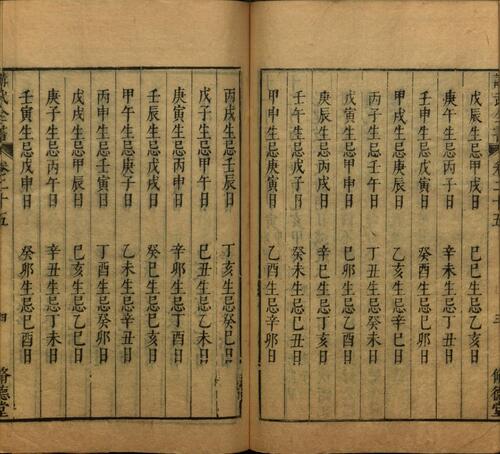 三
脩德堂
戊辰生忌甲戌日 己巳生忌乙亥日
庚午生忌丙子日 辛未生忌丁丑日
壬申生忌戊寅日 癸酉生忌己卯日
甲戌生忌庚辰日 乙亥生忌辛巳日
丙子生忌壬午日 丁丑生忌癸未日
戊寅生忌甲申日 己卯生忌乙酉日
庚辰生忌丙戌日 辛巳生忌丁亥日
壬午生忌戊子日 癸未生忌己丑日
甲申生忌庚寅日 乙酉生忌辛卯日
丙戌生忌壬辰日 丁亥生忌癸巳日
戊子生忌甲午日 己丑生忌乙未日
庚寅生忌丙申日 辛卯生忌丁酉日
壬辰生忌戊戌日 癸巳生忌己亥日
甲午生忌庚子日 乙未生忌辛丑日
丙申生忌壬寅日 丁酉生忌癸卯日
戊戌生忌甲辰日 己亥生忌乙巳日
庚子生忌丙午日 辛丑生忌丁未日
壬寅生忌戊申日 癸卯生忌己酉日
卷之十五
四
脩德堂